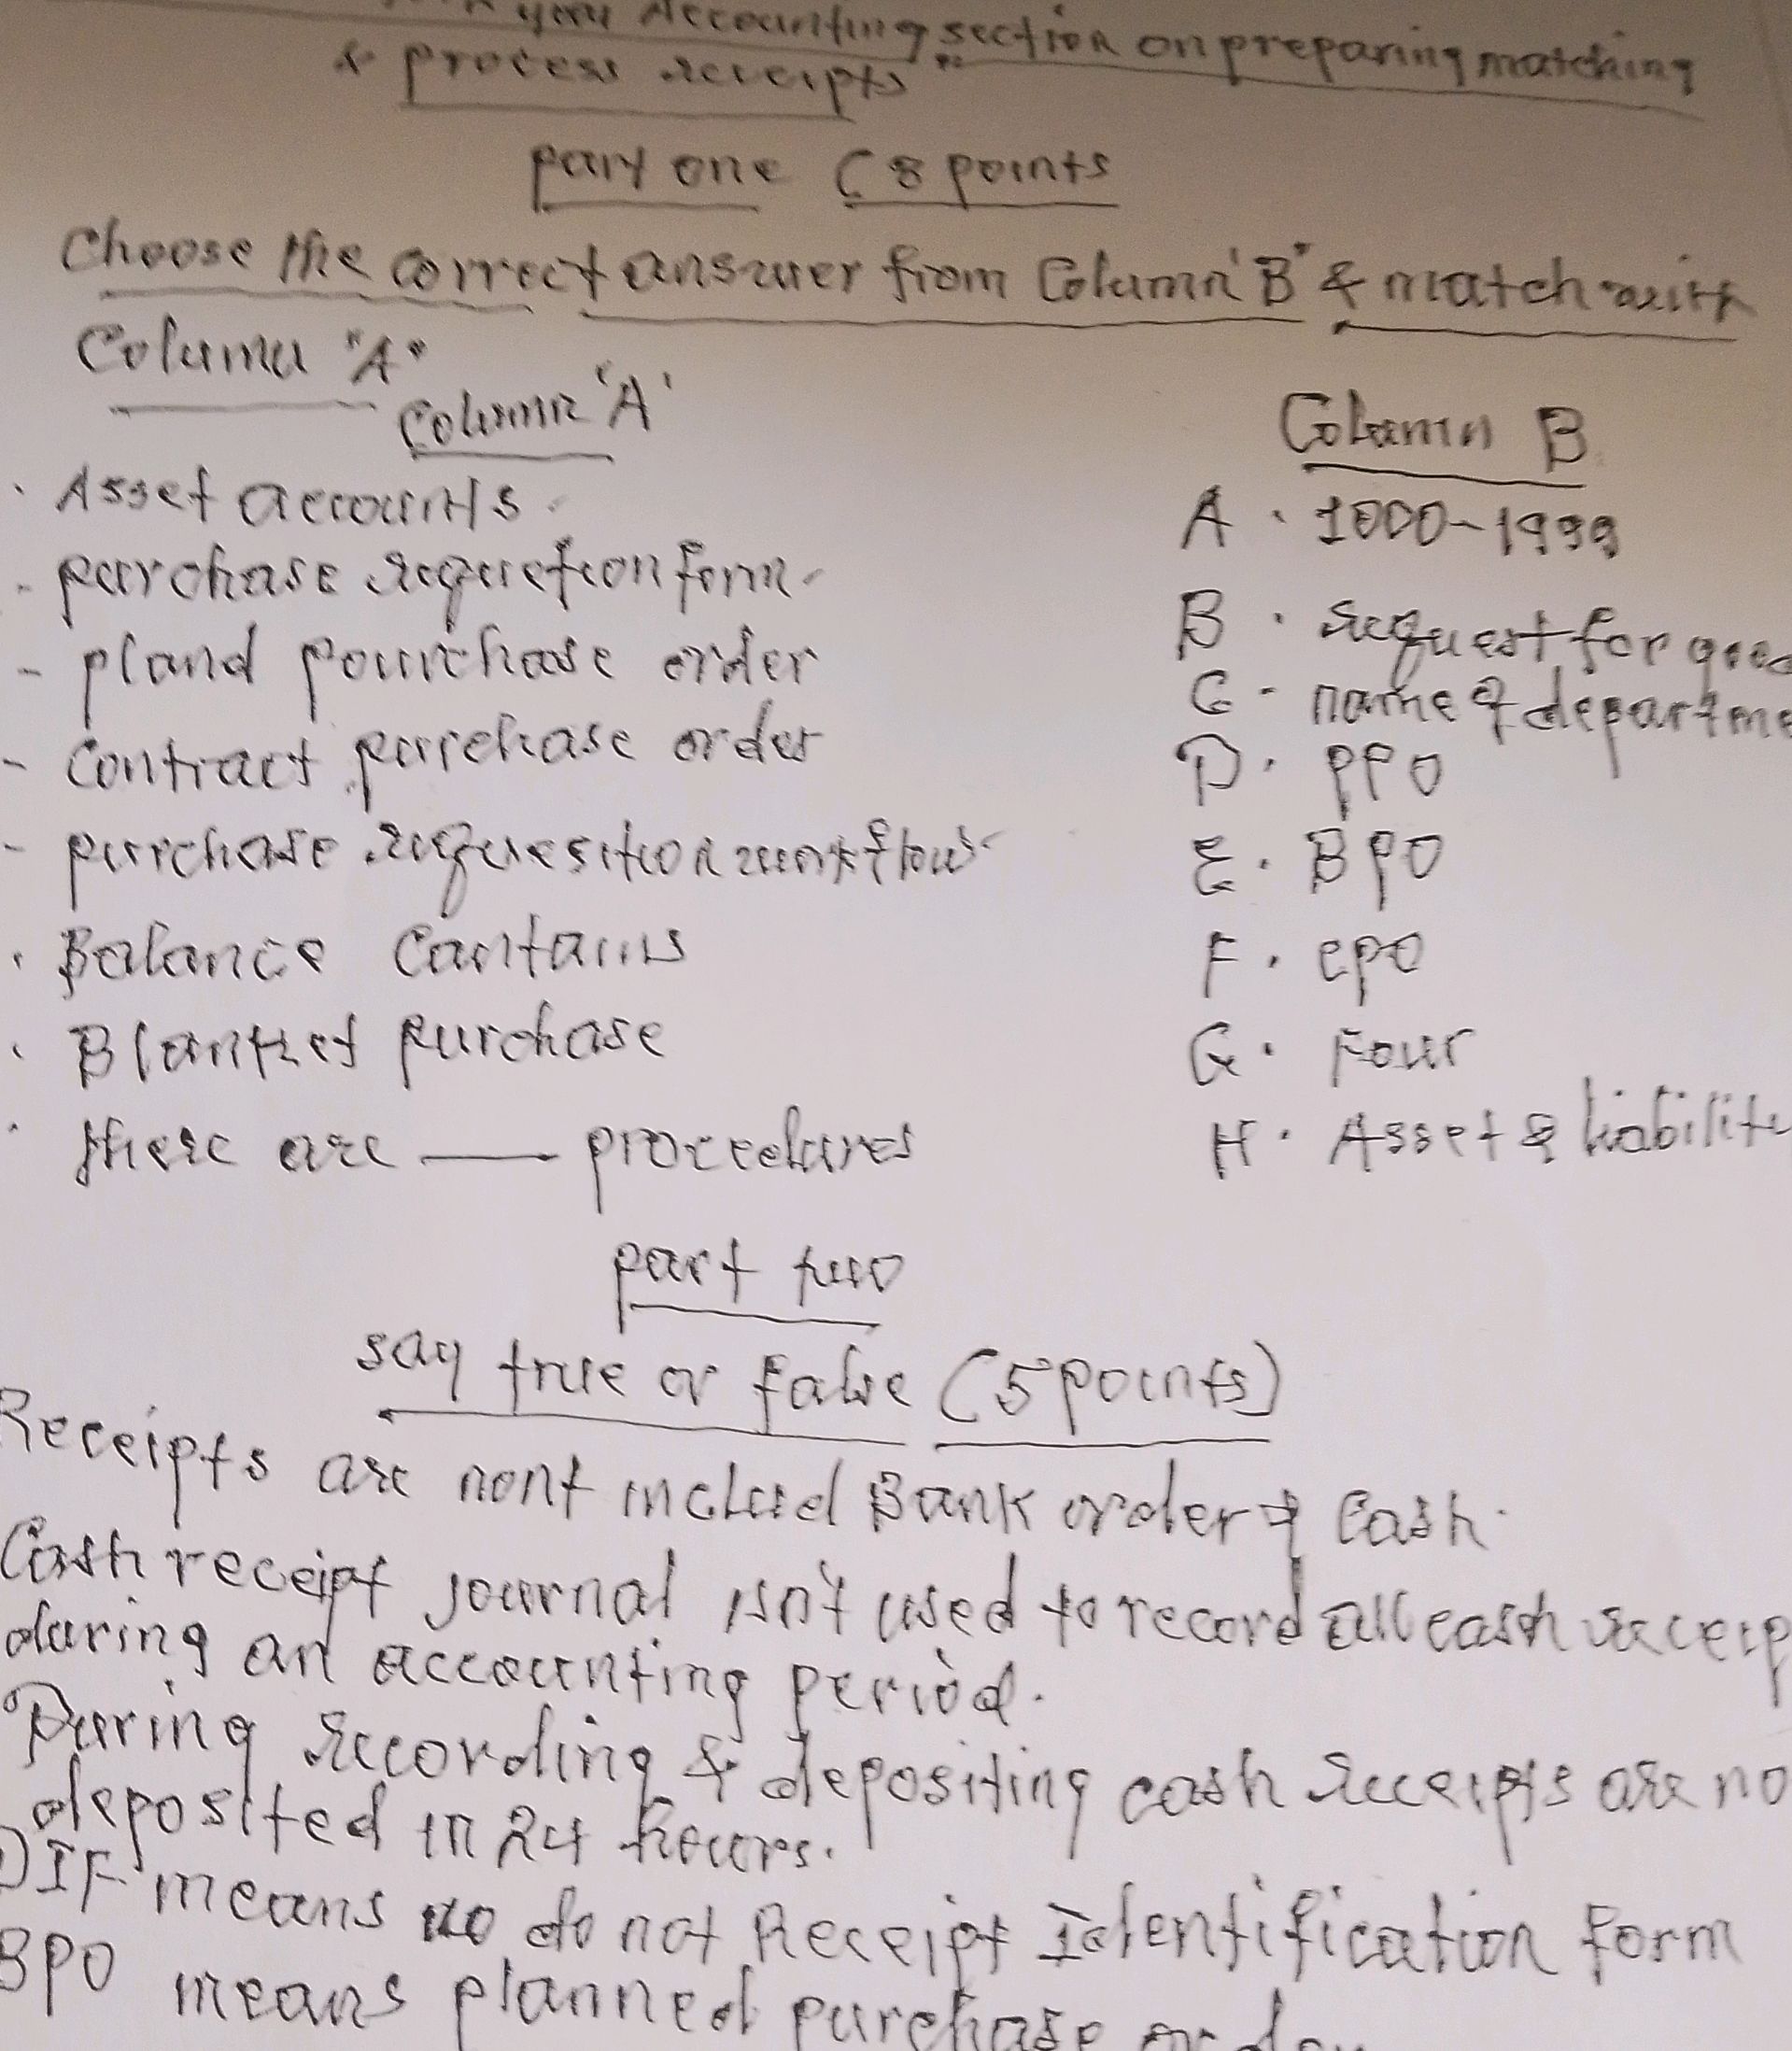 your Accounting section on preparing matching
& process receipts
part one (8 points
Choose the correct answer from Column 'B" & match with
Column "A"
Column 'A'
Column B
. Asset accounts.
A . 1000-1999
- purchase requetion form
B . request for
- pland pourchase order
C - name of
- Contract purchase order
D . PPO
- purchase requesition workflow
E . BPO
. Balance Cantains
F . cpo
. Blanket purchase
G . Four
. there are — procedures
H . Asset & liability
part two
say true or false (5 points)
Receipts are nont includ Bank order & Cash.
Cash receipt journal isn't used to record all cash
during an accounting period.
During recording & depositing cash receipts are no
deposited in 24 hours.
DIF means do not Receipt Identification form
BPO means planned purchase